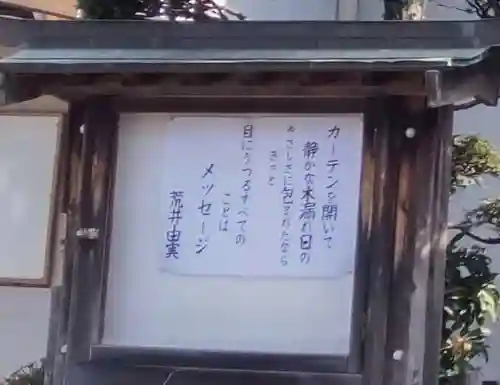 カーテンを開いて
静かな木漏れ日の
やさしさに包まれたなら
きっと
目にうつるすべての
ことは
メッセージ
荒井由実